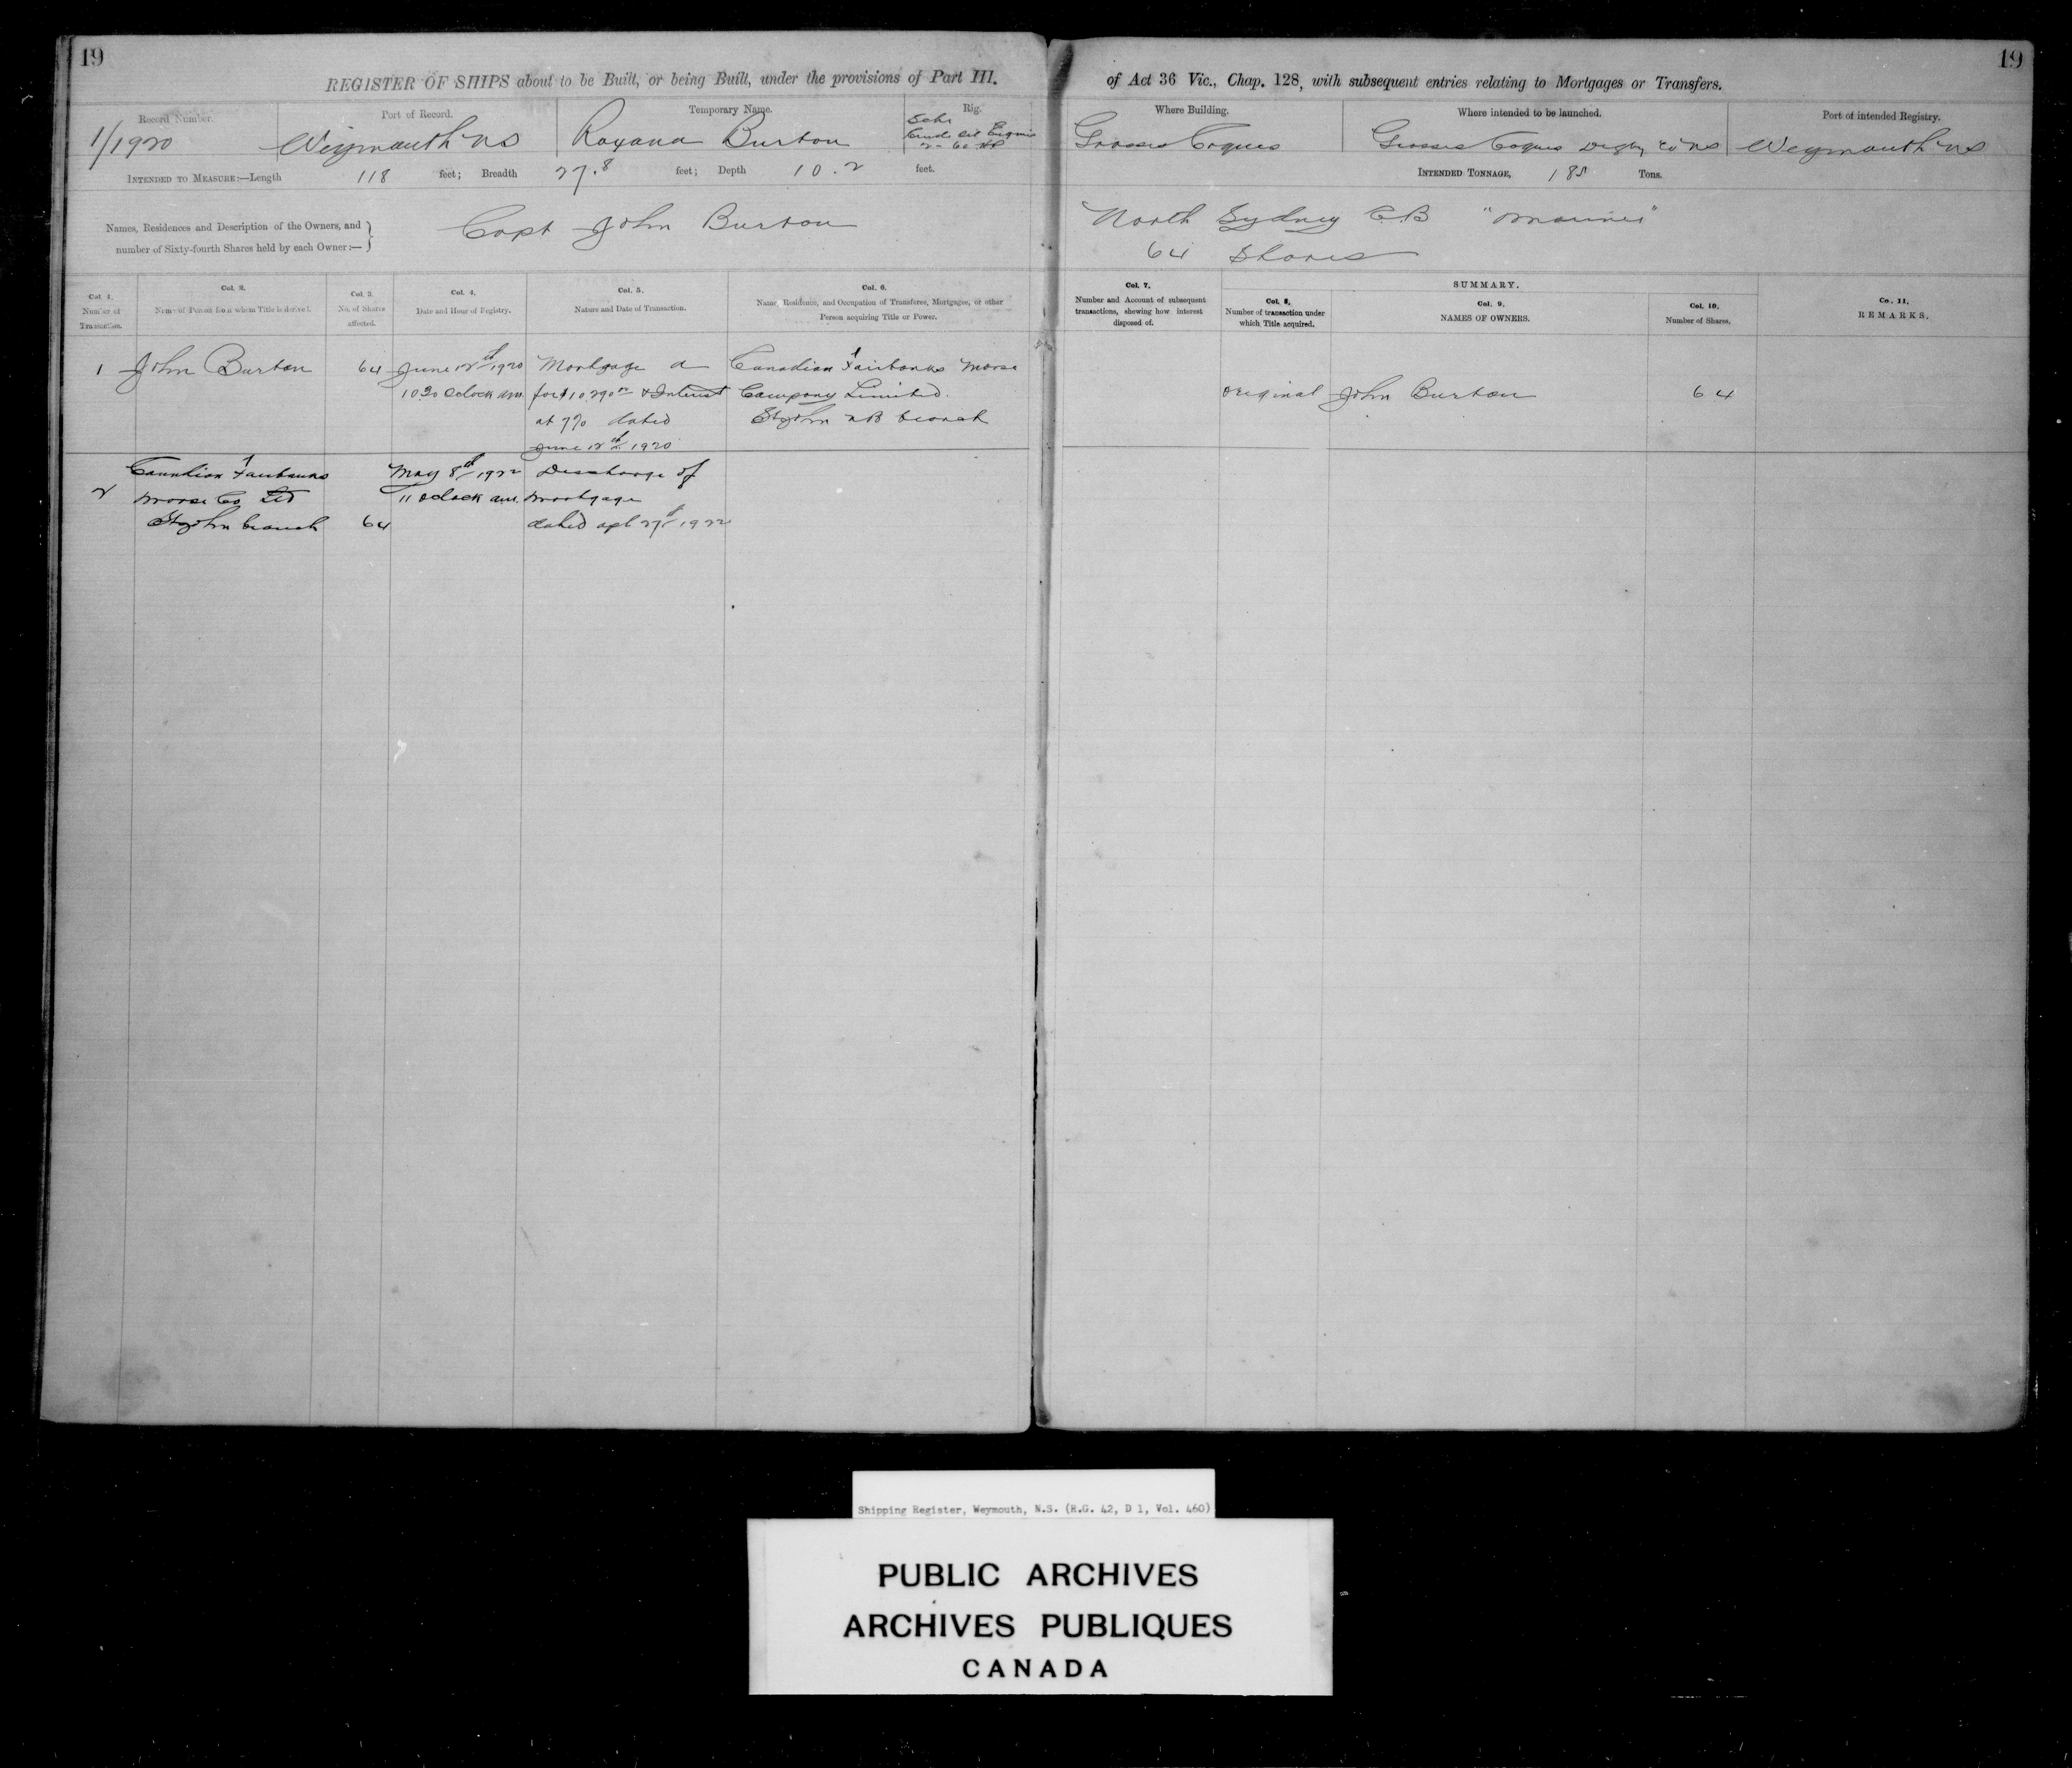 19
19
REGISTER OF SHIPS about to be Built, or being Built, under the provisions of Part III.
of Act 36 Vic., Chap. 128, with subsequent entries relating to Mortgages or Transfers.
Record Number.
1/1920
Port of Record.
Weymouth NS
Temporary Name.
Roxana Burton
Rig.
Schr
Crude Oil Engine
2 - 60 HP
Where Building.
Grosses Coques
Where intended to be launched.
Grosses Coques Digby Co NS
Port of intended Registry.
Weymouth NS
INTENDED TO MEASURE:—Length 118 feet; Breadth 27.8 feet; Depth 10.2 feet.
INTENDED TONNAGE, 185 Tons.
Names, Residences and Description of the Owners, and
number of Sixty-fourth Shares held by each Owner:—
Capt John Burton
North Sydney C.B "Mariner"
64 Shares
Col. 1.
Number of
Transaction.
Col. 2.
Name of Person from whom Title is derived.
Col. 3.
No. of Shares
affected.
Col. 4.
Date and Hour of Registry.
Col. 5.
Nature and Date of Transaction.
Col. 6.
Name, Residence, and Occupation of Transferee, Mortgagee, or other
Person acquiring Title or Power.
Col. 7.
Number and Account of subsequent
transactions, shewing how interest
disposed of.
SUMMARY.
Col. 8.
Number of transaction under
which Title acquired.
Col. 9.
NAMES OF OWNERS.
Col. 10.
Number of Shares.
Co. 11.
REMARKS.
1
John Burton
64
June 12th 1920
10 30 Oclock am
Mortgage a
for $10,290 & Interest
at 7% dated
June 12th 1920
Canadian Fairbanks Morse
Company Limited.
St John NB branch
original
John Burton
64
2
Canadian Fairbanks
Morse Co Ltd
St John branch
64
May 8th 1922
11 oclock am
Discharge of
mortgage
dated apl 27th 1922
Shipping Register, Weymouth, N.S. (R.G. 42, D 1, Vol. 460)
PUBLIC ARCHIVES
ARCHIVES PUBLIQUES
CANADA